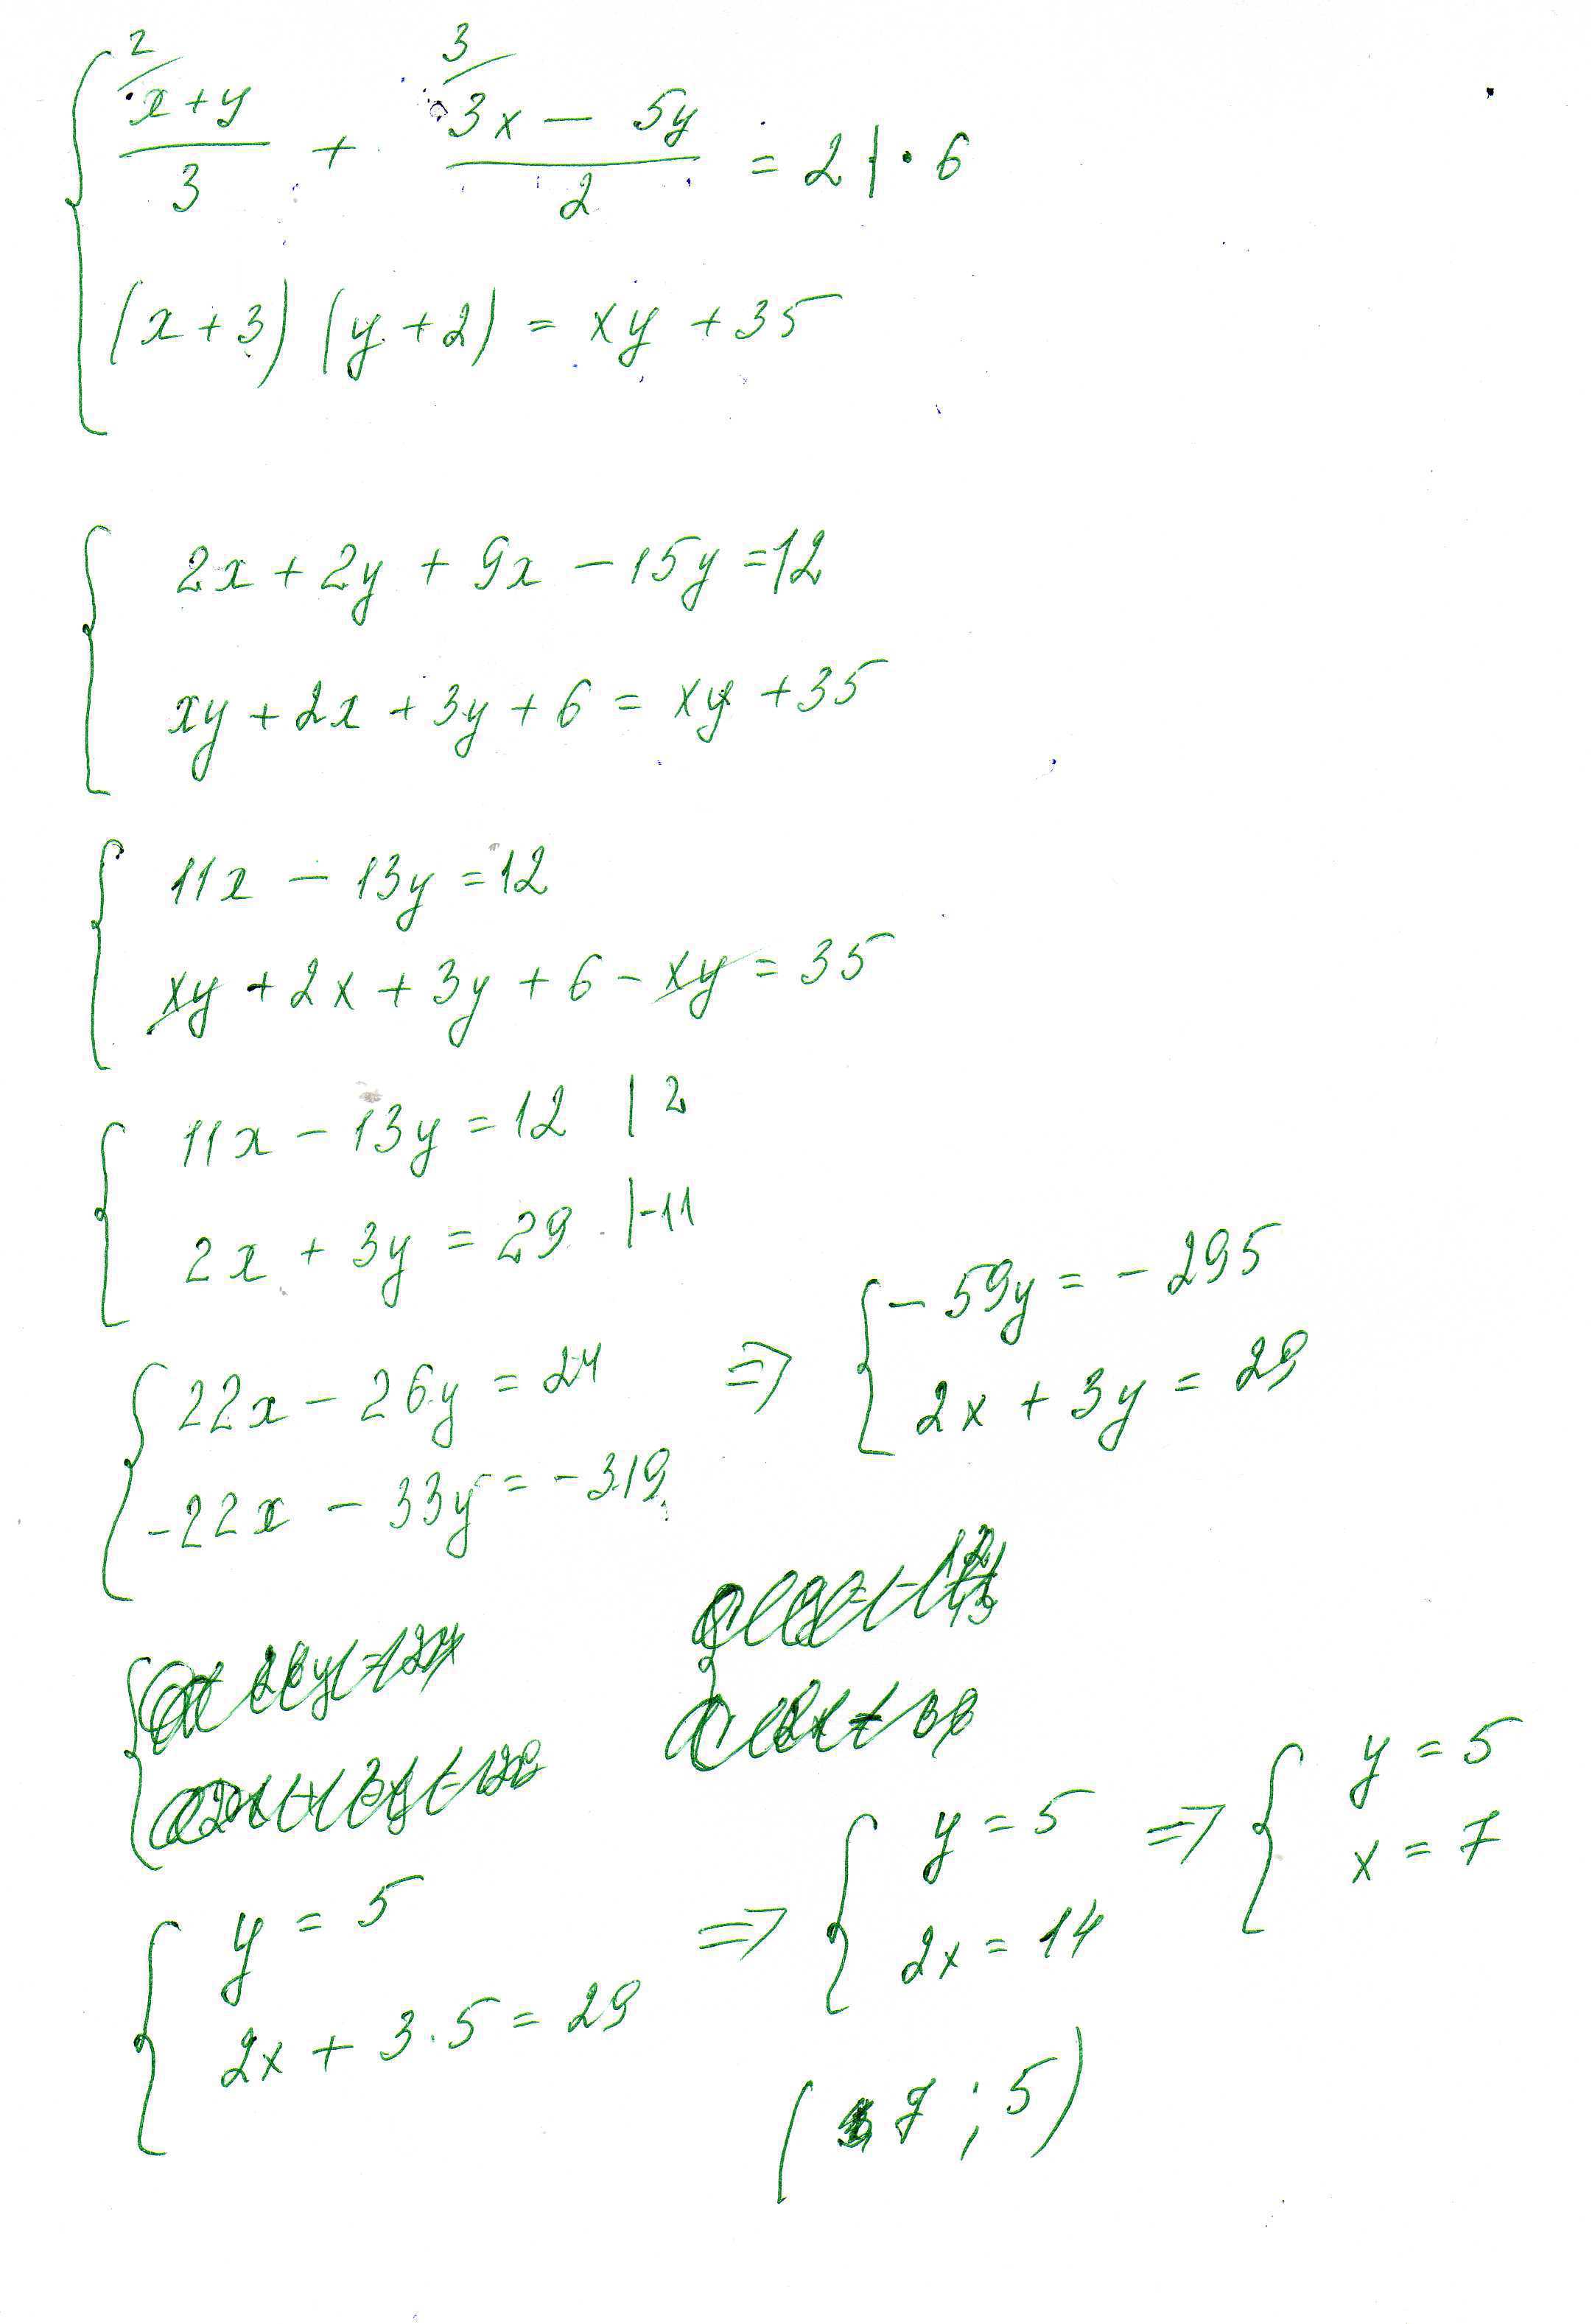 2 3
x+y/3 + 3x - 5y/2 = 2 | · 6
(x+3) (y+2) = xy +35
2x + 2y + 9x - 15y =12
xy + 2x + 3y + 6 = xy +35
11x - 13y =12
xy + 2x + 3y + 6 - xy = 35
11x - 13y = 12 | 2
2x + 3y = 29 |-11
22x - 26y = 24
-22x - 33y = -319
⇒ - 59y = - 295
2x + 3y = 29
y = 5
2x + 3.5 = 29
⇒ y = 5
2x = 14
⇒ y = 5
x = 7
( 7 ; 5)